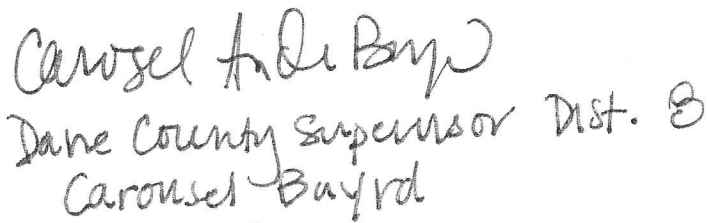 Carousel Andre Bayrd
Dane County Supervisor Dist. 8
Carousel Bayrd